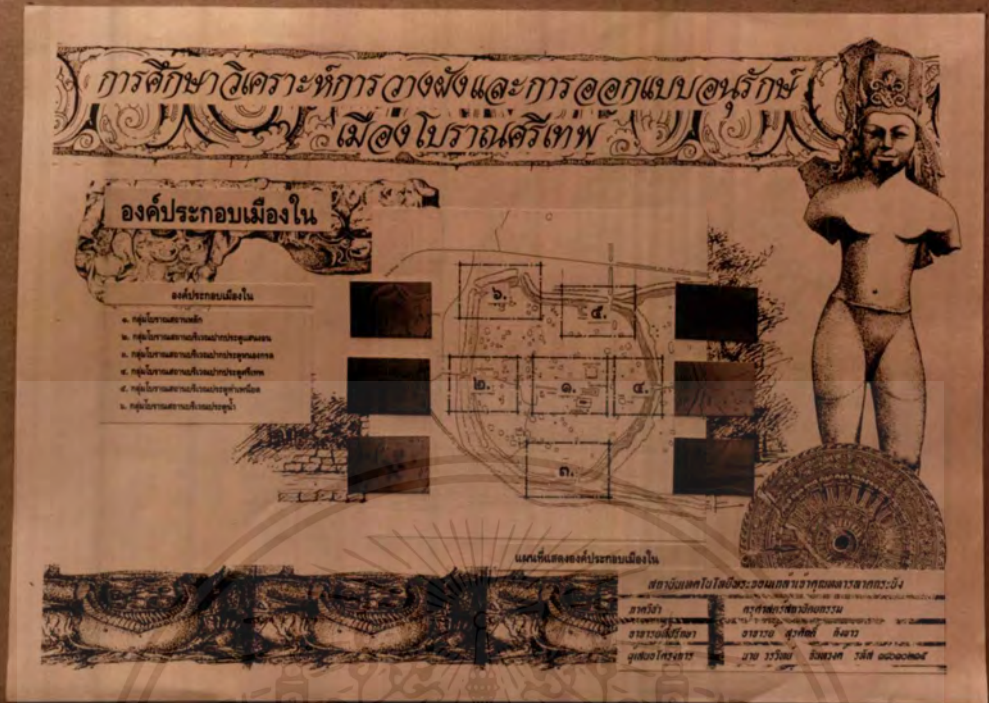 การศึกษาวิเคราะห์การวางผังและการออกแบบอนุรักษ์
เมืองโบราณศรีเทพ
องค์ประกอบเมืองใน
องค์ประกอบเมืองใน
๑. กลุ่มโบราณสถานหลัก
๒. กลุ่มโบราณสถานบริเวณปากประตูแสนงอน
๓. กลุ่มโบราณสถานบริเวณปากประตูหนองกรด
๔. กลุ่มโบราณสถานบริเวณปากประตูศรีเทพ
๕. กลุ่มโบราณสถานบริเวณประตู
๖. กลุ่มโบราณสถานบริเวณประตูน้ำ
๖.
๕.
๒.
๑.
๔.
๓.
แผนที่แสดงองค์ประกอบเมืองใน
สถาบันเทคโนโลยีพระจอมเกล้าเจ้าคุณทหารลาดกระบัง
ภาควิชา ครุศาสตร์สถาปัตยกรรม
อาจารย์ที่ปรึกษา อาจารย์ สุรศักดิ์
ผู้เสนอโครงการ นาย รหัส